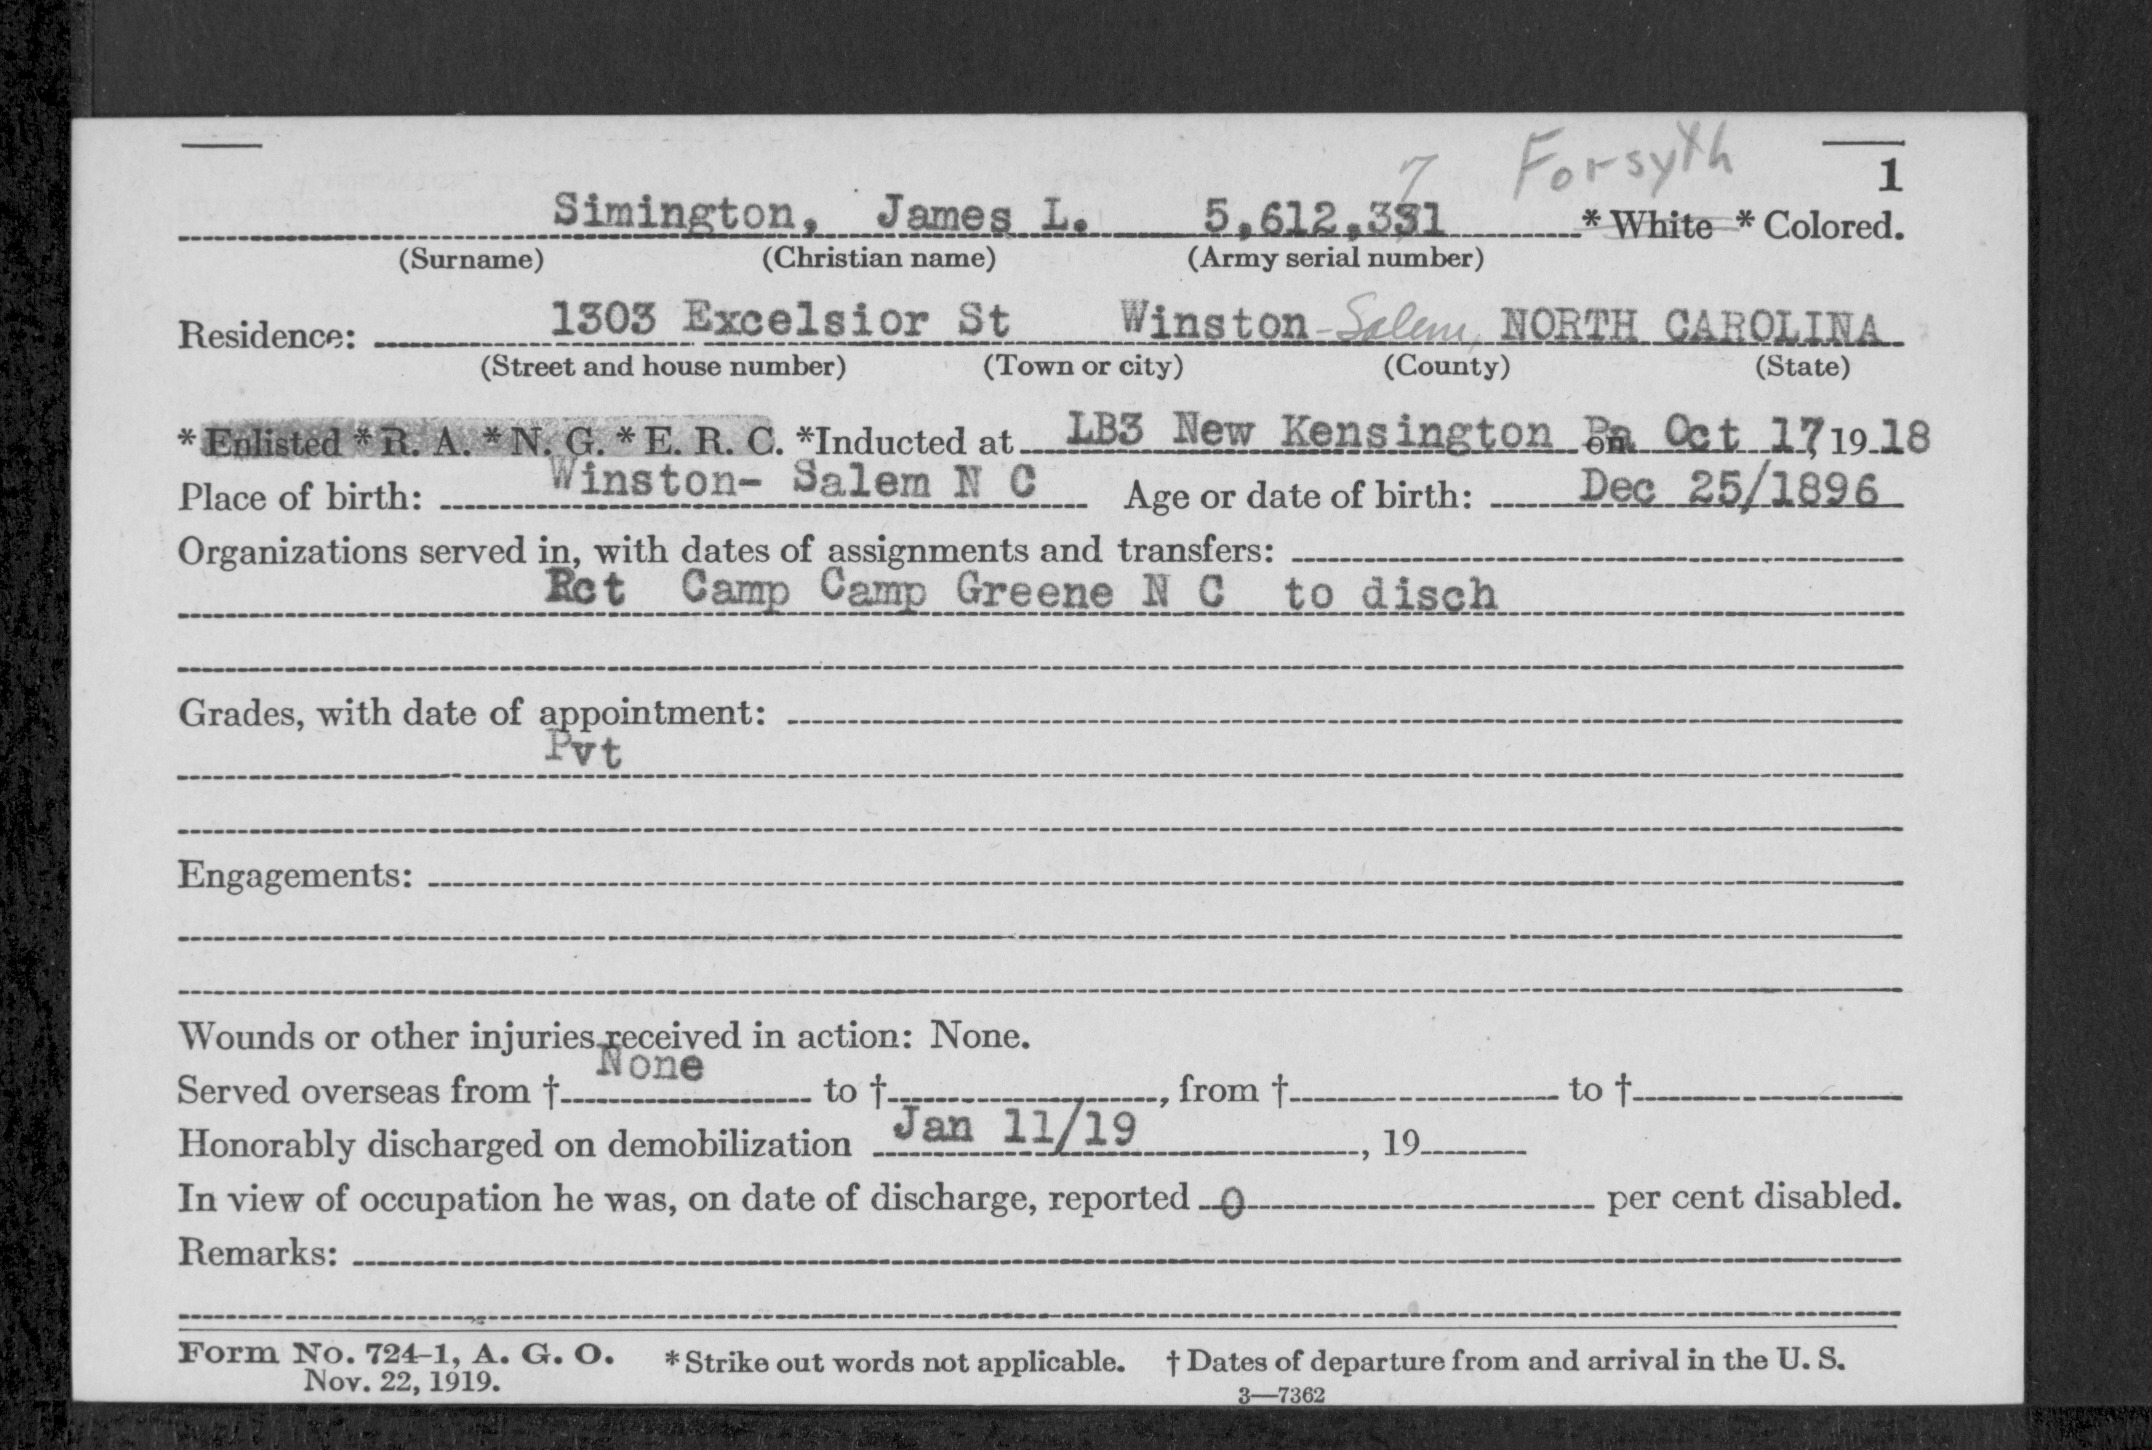 Forsyth
1
7
Simington, James L. 5,612,331 * White * Colored.
(Surname) (Christian name) (Army serial number)
Residence: 1303 Excelsior St Winston-Salem, NORTH CAROLINA
(Street and house number) (Town or city) (County) (State)
* Enlisted * R. A. * N. G. * E. R. C. *Inducted at LB3 New Kensington Pa on Oct 17, 19 18
Place of birth: Winston- Salem N C Age or date of birth: Dec 25/1896
Organizations served in, with dates of assignments and transfers:
Rct Camp Camp Greene N C to disch
Grades, with date of appointment:
Pvt
Engagements:
Wounds or other injuries received in action: None.
Served overseas from † None to †, from † to †
Honorably discharged on demobilization Jan 11/19, 19
In view of occupation he was, on date of discharge, reported 0 per cent disabled.
Remarks:
Form No. 724-1, A. G. O. * Strike out words not applicable. † Dates of departure from and arrival in the U. S.
Nov. 22, 1919.
3—7362